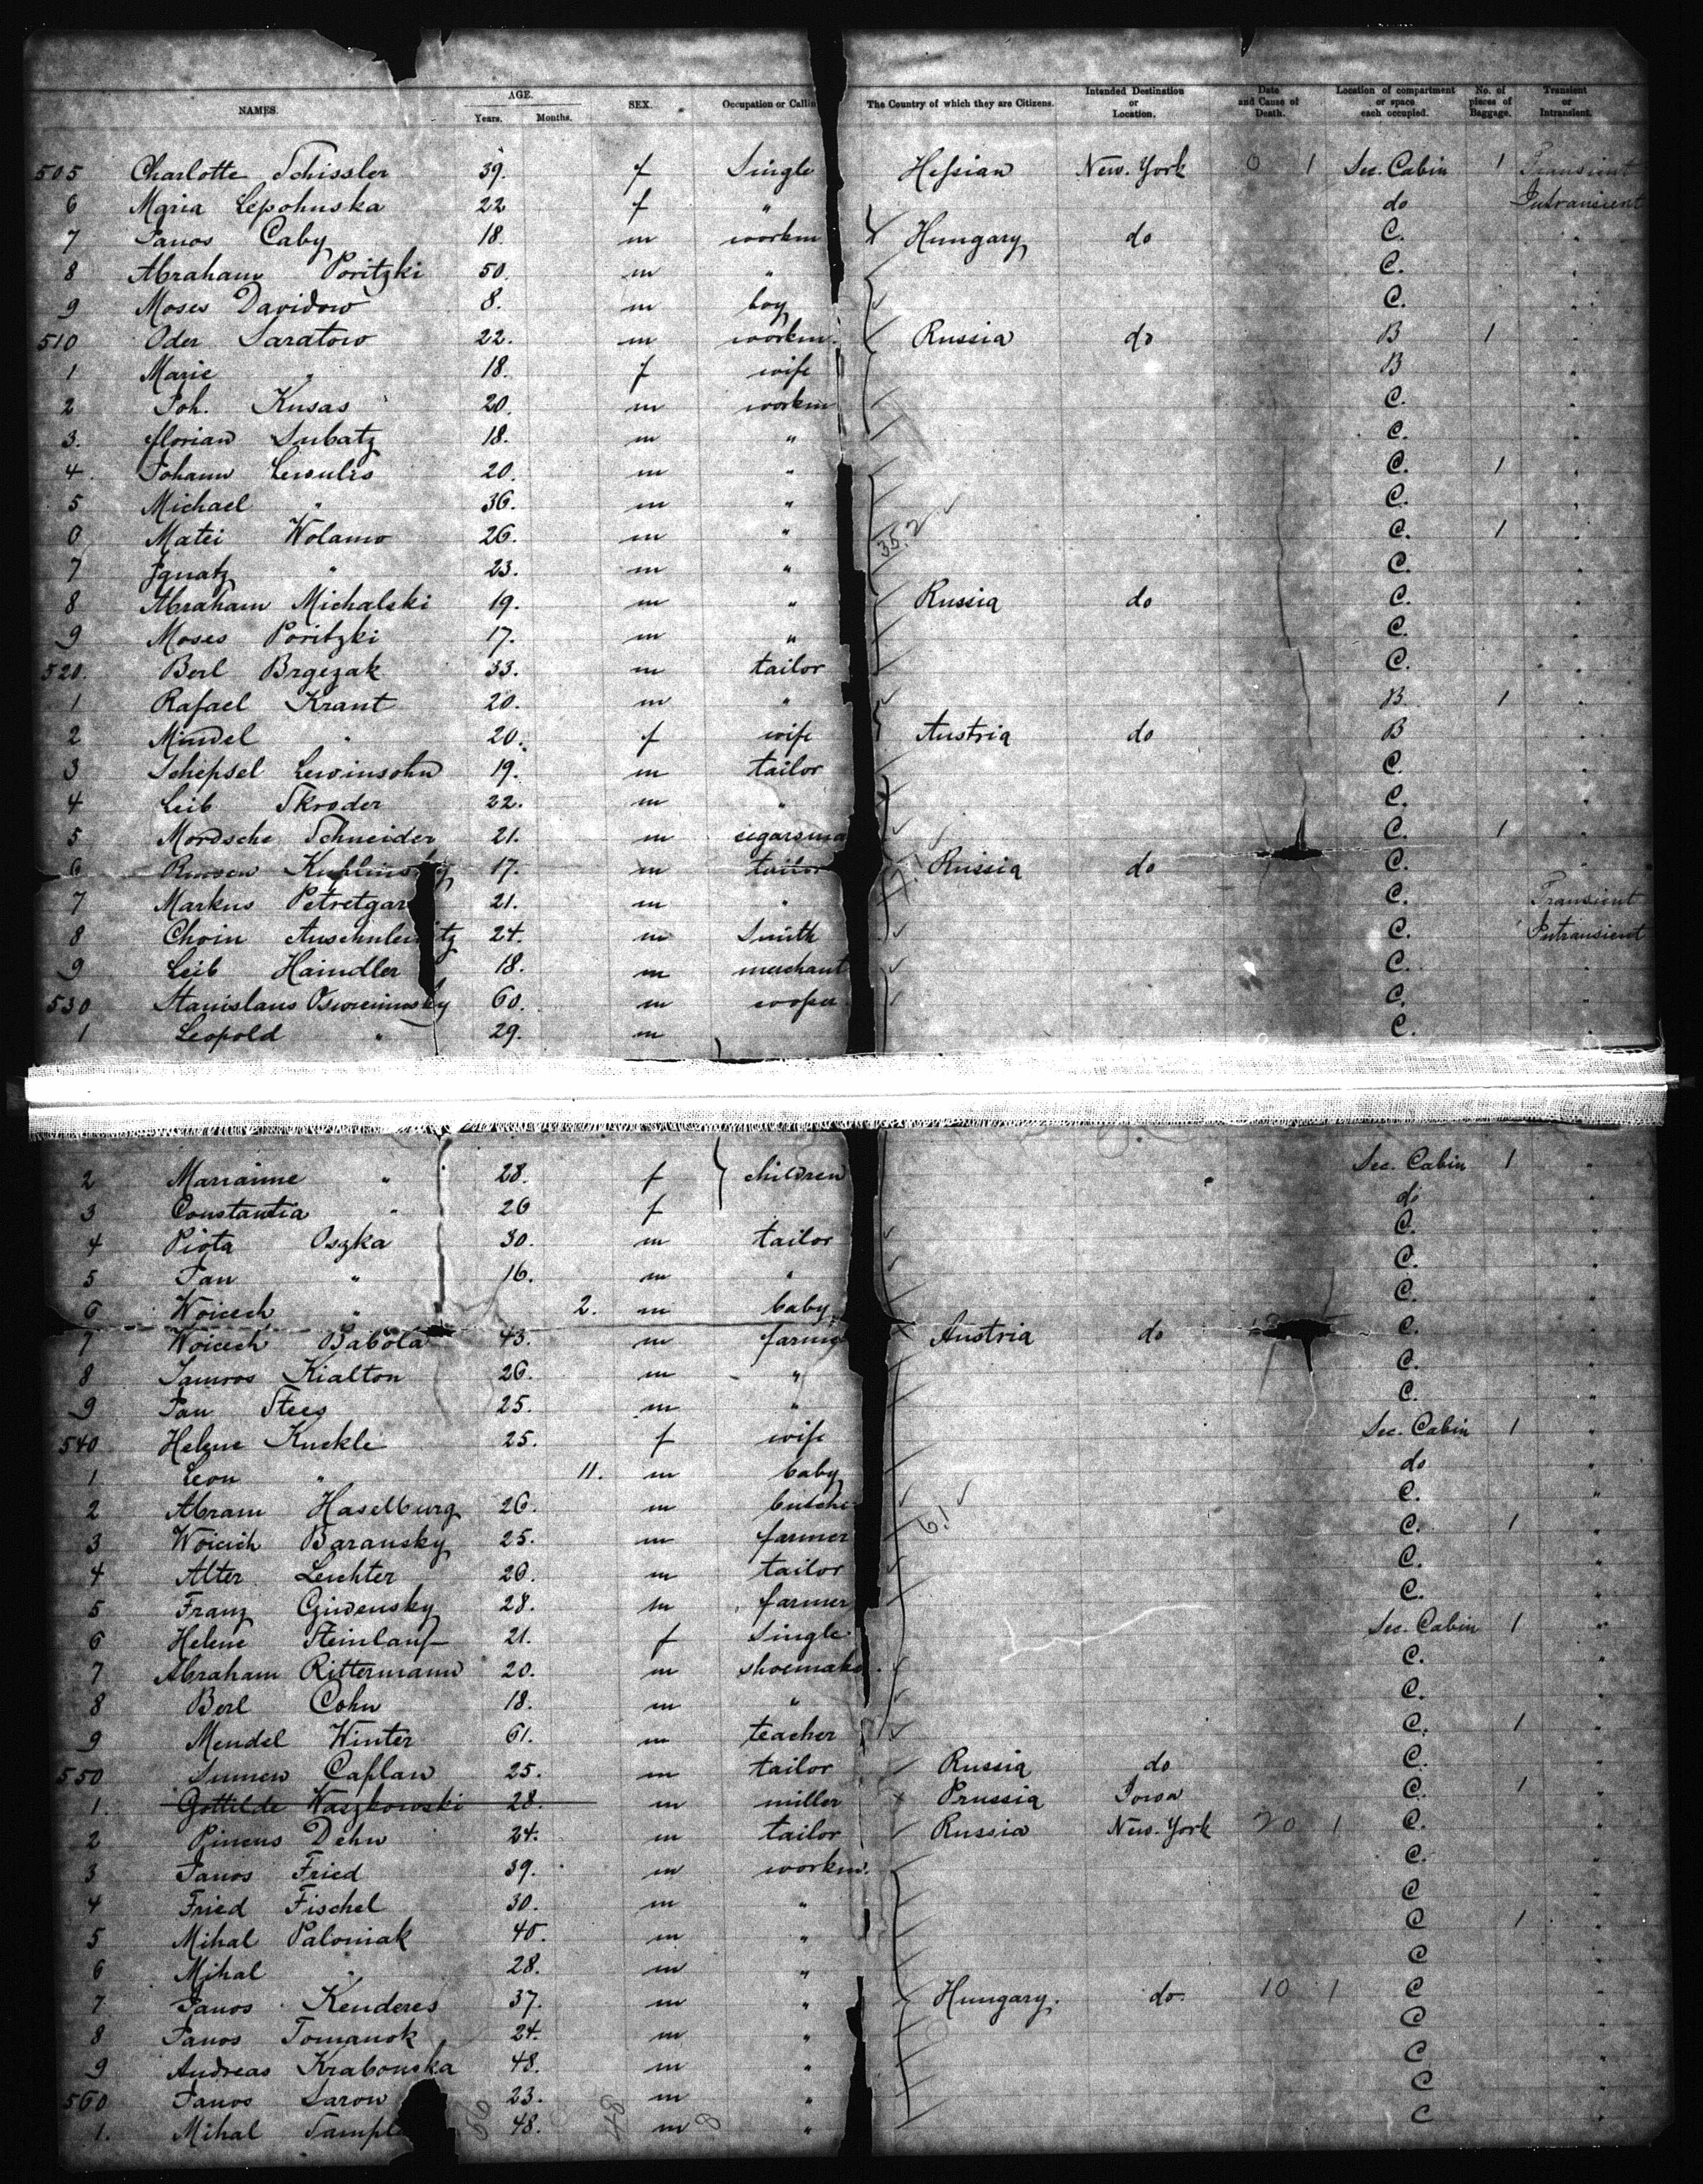 NAMES. AGE. Years. Months. SEX. Occupation or Callin The Country of which they are Citizens. Intended Destination or Location. Date and Cause of Death. Location of compartment or space each occupied. No. of pieces of Baggage. Transient or Intransient.
505 Charlotte Schissler 39. f Single Hessian New. York 0 1 Sec. Cabin 1 Transient
6 Maria Lepohuska 22 f " do Intransient
7 Janos Caby 18. m workm Hungary do C. "
8 Abraham Poritzki 50. m " C. "
9 Moses Davidow 8. m boy C. "
510 Oder Saratow 22. m workm. Russia do B 1 "
1 Marie " 18. f wife B "
2 Joh. Kusas 20. m workm C. "
3. Florian Subatz 18. m " C. "
4. Johann Lewulis 20. m " C. 1 "
5 Michael " 36. m " C. "
6 Matei Wolamo 26. m " 35.2 C. 1 "
7 Ignatz " 23. m " C. "
8 Abraham Michalski 19. m " Russia do C. "
9 Moses Poritzki 17. m " C. "
520. Berl Brgezak 33. m tailor C. "
1 Rafael Krant 20. m " B. 1 "
2 Mindel " 20. f wife Austria do B "
3 Schepsel Lewinsohn 19. m tailor C. "
4 Leib Skroder 22. m " C. "
5 Mordsche Schneider 21. m cigarsma C. 1 "
6 17. m tailor Russia do C. "
7 Markus Petretgar 21. m " C. Transient
8 Choin 24. m Smith C. Intransient
9 Leib Haindler 18. m merchant C. "
530 Stanislaus 60. m cooper C. "
1 Leopold " 29. m C. "
2 Marianne " 28. f children Sec. Cabin 1 "
3 Constantia " 26 f do "
4 Piota Oszka 30. m tailor C. "
5 Jan " 16. m " C. "
6 Woicech " 2. m baby C. "
7 Woicech Babola 43. m farme Austria do C. "
8 Jamros Kialton 26. m " C. "
9 Jan Stees 25. m " C. "
540 Helene Kuckle 25. f wife Sec. Cabin 1 "
1. Leon " 11. m baby do "
2 Abram Haselburg 26. m butche C. "
3 Woicich Baransky 25. m farmer 61 C. 1 "
4 Alter Leichter 26. m tailor C. "
5 Franz Giwensky 28. m farmer C. "
6 Helene Steinlauf 21. f Single Sec. Cabin 1 "
7 Abraham Rittermann 20. m shoemake C. "
8 Berl Cohn 18. m " C. "
9 Mendel Winter 61. m teacher C. 1 "
550 Sumen Caplan 25. m tailor Russia do C. "
1. Gottilde Waszkowski 28. m miller Prussia Iowa C. 1 "
2 Pincus Dehn 24. m tailor Russia New. York 20 1 C. "
3 Janos Fried 39. m workm. C. "
4 Fried Fischel 30. m " C "
5 Mihal Paloniak 40. m " C 1 "
6 Mihal " 28. m " C "
7 Janos Kenderes 37. m " Hungary. do. 10 1 C "
8 Janos Tomanok 24. m " C "
9 Andreas Krabonska 48. m " C "
560 Janos Sarow 23. m " C "
1. Mihal 48. m " C "